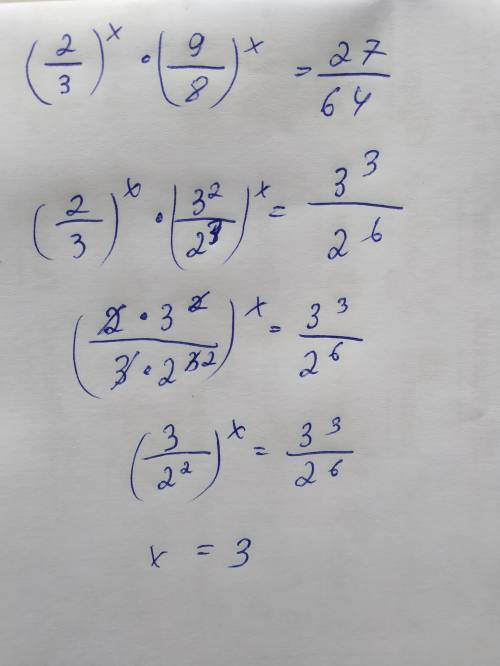 (2/3)^x · (9/8)^x = 27/64
(2/3)^x · (3^2/2^3)^x = 3^3/2^6
(2 · 3^2/3 · 2^3 2)^x = 3^3/2^6
(3/2^2)^x = 3^3/2^6
x = 3